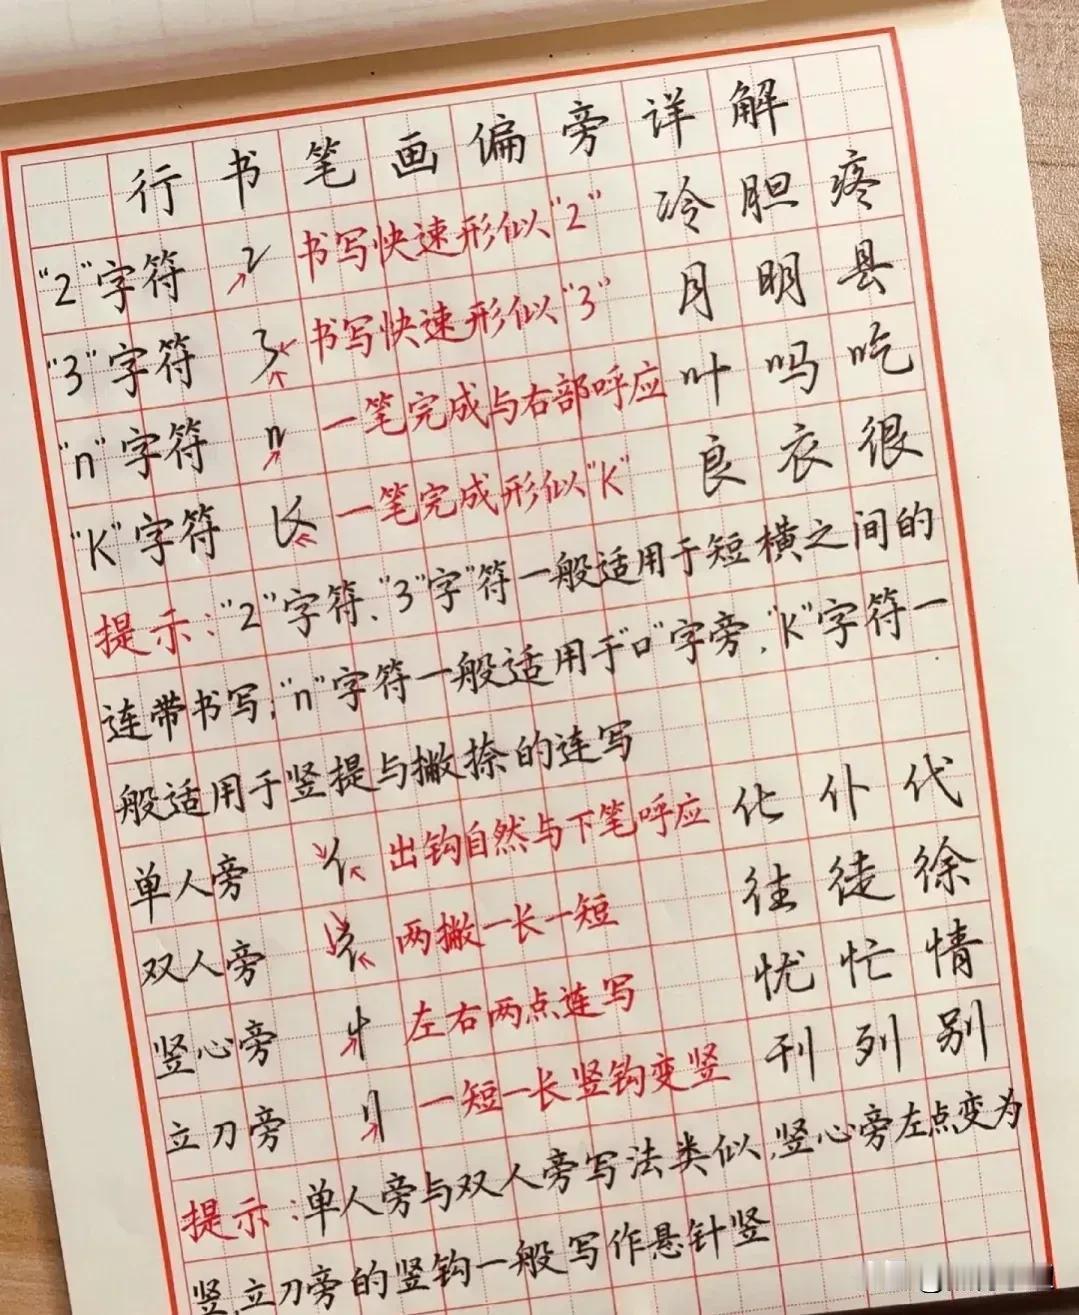 行书笔画偏旁详解
"2"字符 书写快速形似"2" 冷胆疼
"3"字符 书写快速形似"3" 月明县
"n"字符 n 一笔完成与右部呼应 叶吗吃
"K"字符 一笔完成形似"K" 良衣很
提示:"2"字符、"3"字"符一般适用于短横之间的
连带书写;"n"字符一般适用于"口"字旁,"K"字符一
般适用于竖提与撇捺的连写
单人旁 亻 出钩自然与下笔呼应 化仆代
双人旁 彳 两撇一长一短 往徒徐
竖心旁 忄 左右两点连写 忧忙情
立刀旁 刂 一短一长竖钩变竖 刊列别
提示:单人旁与双人旁写法类似,竖心旁左点变为
竖,立刀旁的竖钩一般写作悬针竖